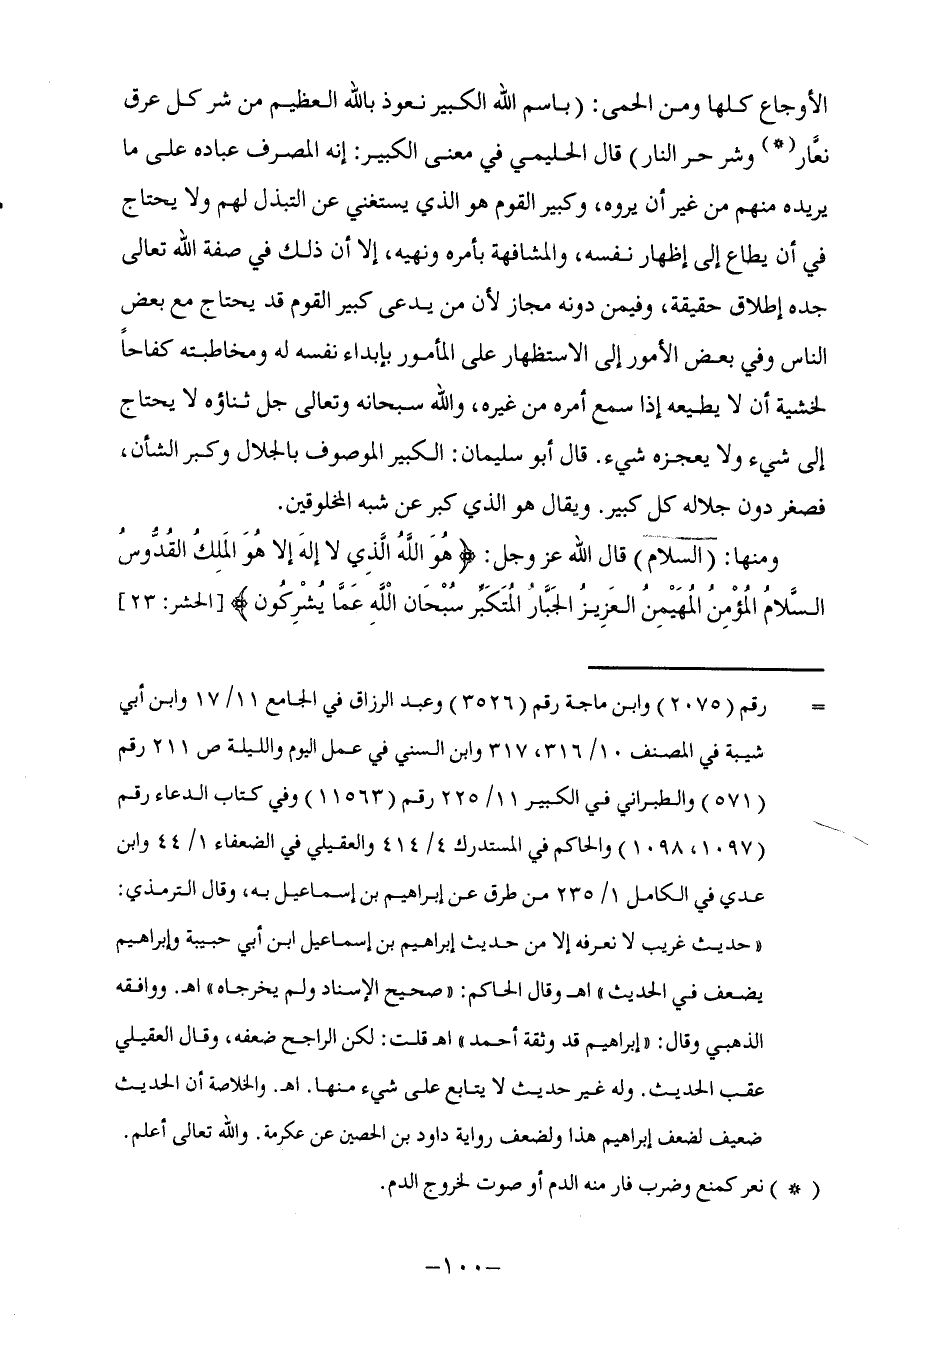 الأوجاع كلها ومن الحمى: (باسم الله الكبير نعوذ بالله العظيم من شر كل عرق
نعَّار(*) وشر حر النار) قال الحليمي في معنى الكبير: إنه المصرف عباده على ما
يريده منهم من غير أن يروه، وكبير القوم هو الذي يستغني عن التبذل لهم ولا يحتاج
في أن يطاع إلى إظهار نفسه، والمشافهة بأمره ونهيه، إلا أن ذلك في صفة الله تعالى
جده إطلاق حقيقة، وفيمن دونه مجاز لأن من يدعى كبير القوم قد يحتاج مع بعض
الناس وفي بعض الأمور إلى الاستظهار على المأمور بإبداء نفسه له ومخاطبته كفاحاً
لخشية أن لا يطيعه إذا سمع أمره من غيره، والله سبحانه وتعالى جل ثناؤه لا يحتاج
إلى شيء ولا يعجزه شيء. قال أبو سليمان: الكبير الموصوف بالجلال وكبر الشأن،
فصغر دون جلاله كل كبير. ويقال هو الذي كبر عن شبه المخلوقين.
ومنها: (السلام) قال الله عز وجل: ﴿هُوَ اللَّهُ الَّذِي لا إلهَ إلا هُوَ المَلِكُ القُدُّوسُ
السَّلامُ المُؤْمِنُ المُهَيْمِنُ العَزِيزُ الجَبَّارُ المُتَكَبِّرُ سُبْحَان اللَّهِ عَمَّا يُشْرِكُون﴾ [الحشر: ٢٣]
= رقم (٢٠٧٥) وابن ماجة رقم (٣٥٢٦) وعبد الرزاق في الجامع ١١/ ١٧ وابن أبي
شيبة في المصنف ١٠/ ٣١٦، ٣١٧ وابن السني في عمل اليوم والليلة ص ٢١١ رقم
(٥٧١) والطبراني في الكبير ١١/ ٢٢٥ رقم (١١٥٦٣) وفي كتاب الدعاء رقم
(١٠٩٧، ١٠٩٨) والحاكم في المستدرك ٤/ ٤١٤ والعقيلي في الضعفاء ١/ ٤٤ وابن
عدي في الكامل ١/ ٢٣٥ من طرق عن إبراهيم بن إسماعيل به، وقال الترمذي:
«حديث غريب لا نعرفه إلا من حديث إبراهيم بن إسماعيل ابن أبي حبيبة وإبراهيم
يضعف في الحديث» اهـ وقال الحاكم: «صحيح الإسناد ولم يخرجاه» اهـ. ووافقه
الذهبي وقال: «إبراهيم قد وثقة أحمد» اهـ قلت: لكن الراجح ضعفه، وقال العقيلي
عقب الحديث. وله غير حديث لا يتابع على شيء منها. اهـ. والخلاصة أن الحديث
ضعيف لضعف إبراهيم هذا ولضعف رواية داود بن الحصين عن عكرمة. والله تعالى أعلم.
(*) نعر كمنع وضرب فار منه الدم أو صوت لخروج الدم.
-١٠٠-